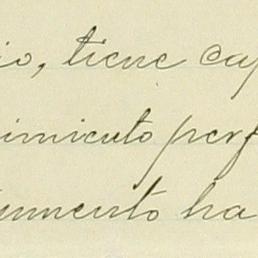 io, tiene cap
imiento perf
rumento ha